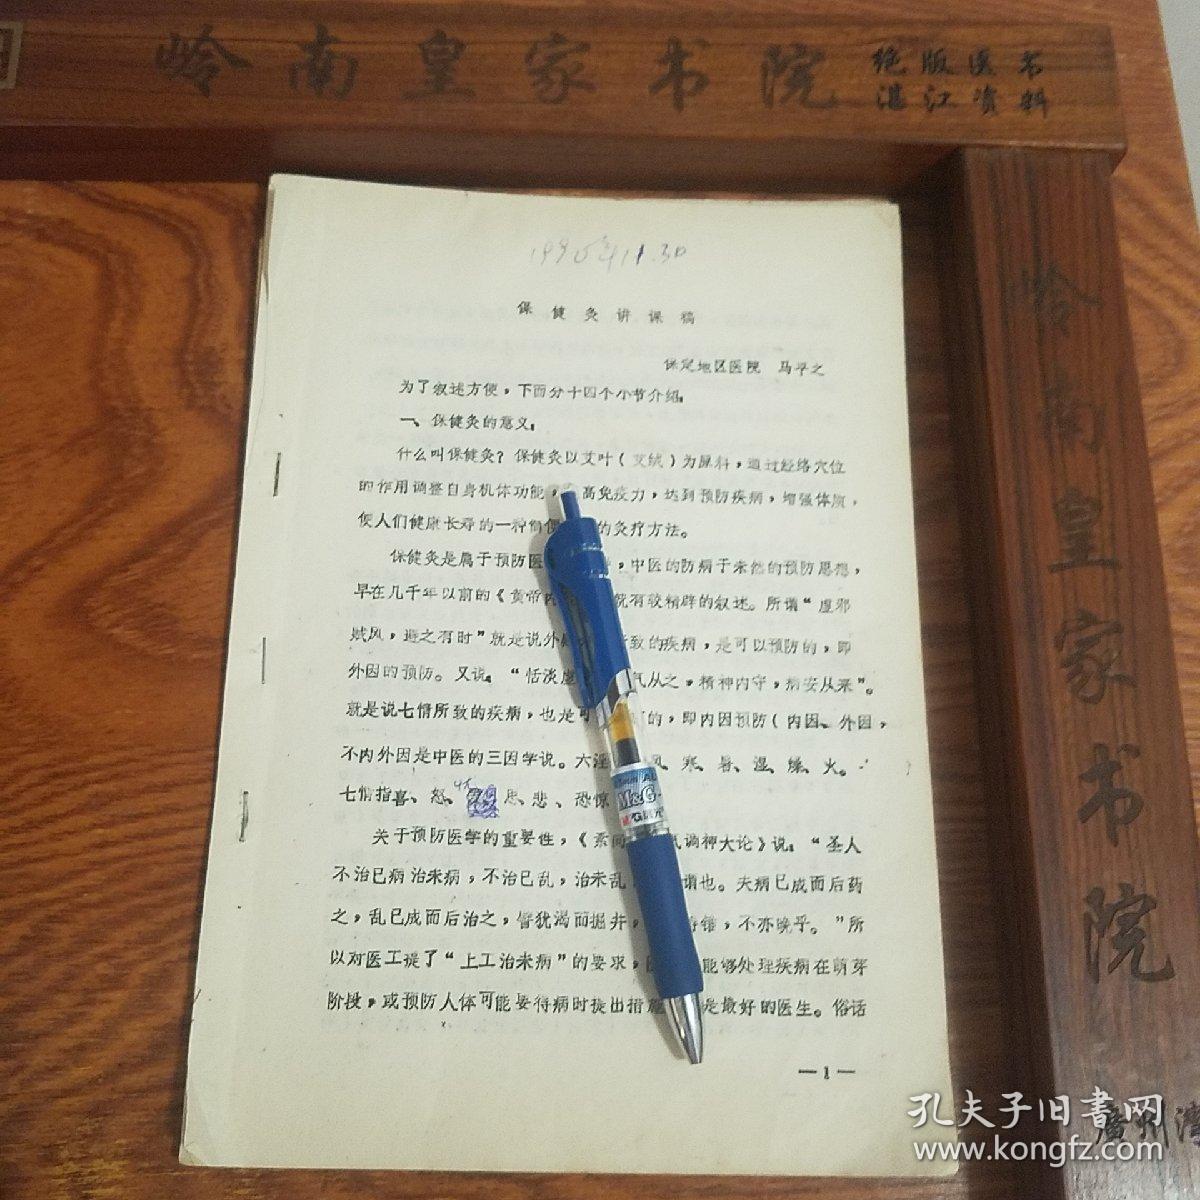 岭南皇家书院
绝版医书
湛江资料
1990年11.30
保健灸讲课稿
保定地区医院 马平之
为了叙述方便，下面分十四个小节介绍。
一、保健灸的意义：
什么叫保健灸？保健灸以艾叶（艾绒）为原料，通过经络穴位
的作用调整自身机体功能， 高免疫力，达到预防疾病，增强体质，
使人们健康长寿的一种 的灸疗方法。
保健灸是属于预防医 ，中医的防病于未然的预防思想，
早在几千年以前的《黄帝内 就有较精辟的叙述。所谓“虚邪
贼风，避之有时”就是说外 所致的疾病，是可以预防的，即
外因的预防。又说：“恬淡虚 气从之，精神内守，病安从来”。
就是说七情所致的疾病，也是可 的，即内因预防（内因、外因，
不内外因是中医的三因学说。六淫 风、寒、暑、湿、燥、火。
七情指喜、怒、 思、悲、恐惊
关于预防医学的重要性，《素问 气调神大论》说：“圣人
不治已病治未病，不治已乱，治未乱 谓也。夫病已成而后药
之，乱已成而后治之，譬犹渴而掘井， 锥，不亦晚乎。”所
以对医工提了“上工治未病”的要求， 能够处理疾病在萌芽
阶段，或预防人体可能要得病时提出措施 是最好的医生。俗话
—1—
M&G
岭南皇家书院
廣州灣
孔夫子旧书网
www.kongfz.com